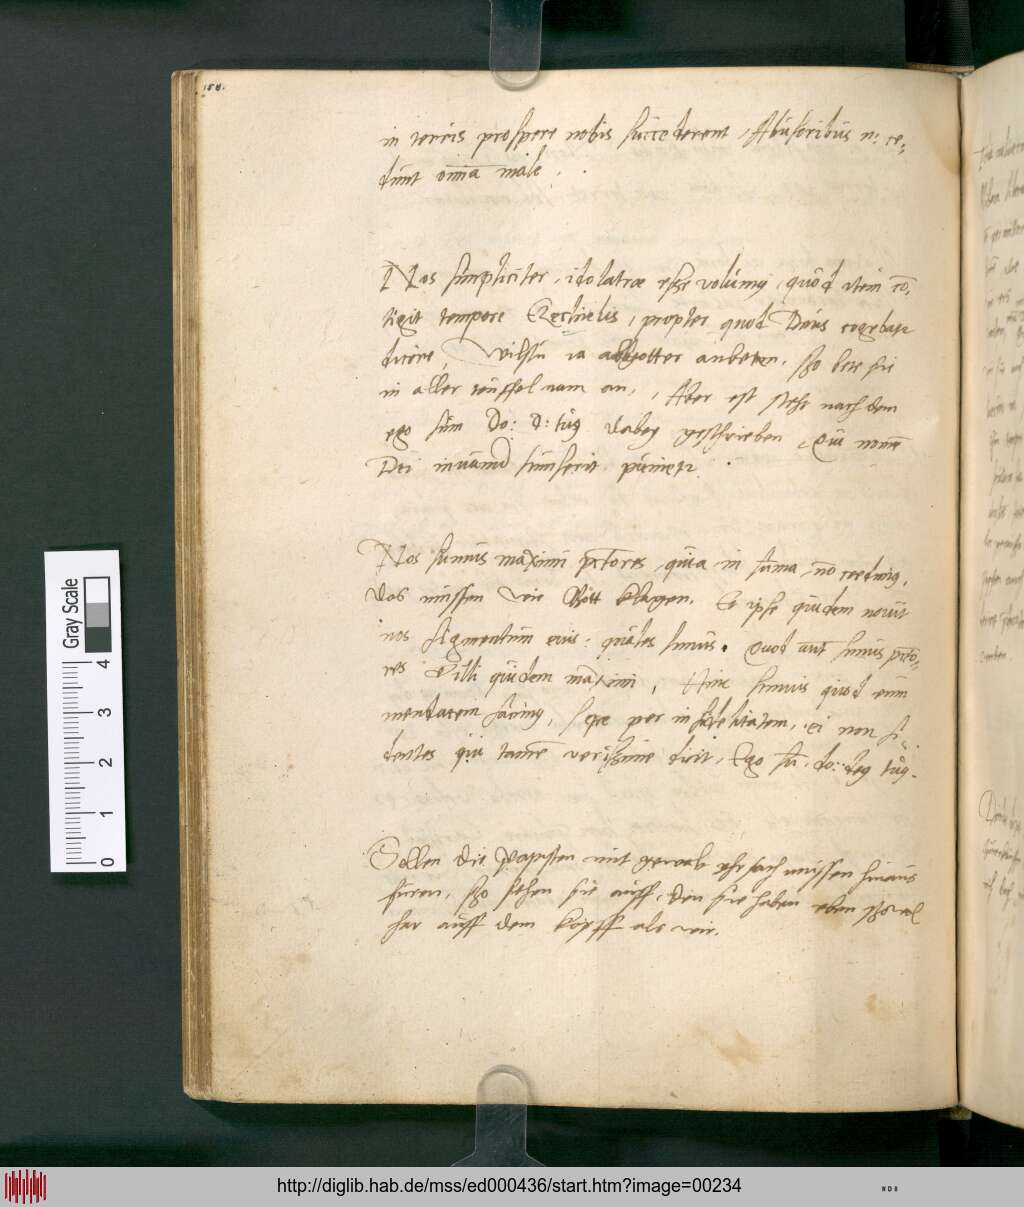 in terris prospere nobis succederent, Abusoribus n: ce-
dunt omnia male.
Nos simpliciter, idolatrae esse volumus, quod item co,
tigit tempore Ezechielis, propter quod Deus cogebatur
dicere, Wilstu ia abgotter anbeten, sho bete sie
in aller teuffel nam an, Aber est steht nach dem
ego sum Do: D: tuus dabey geschrieben, Qui nomen
Dei in vanum sumserit, punietur.
Nos sumus maximi peccatores, quia in summa, non credimus,
das mussen wir Gott klagen. Et ipse quidem novit
nos figmentum eius: quales simus. Quod autem simus pecto-
res Illi quidem maximi, Hinc simus quod eum
mendacem facimus, sepe per infidelitatem, ei non fi
dentes qui tamen verissime dicit, Ego sum, do: deus tuus.
Sollen die Papisten mit gewalt ursach mussen hinaus
furen, sho sehen sie auff, den sie haben eben showol
har auff dem kopff als wir.
Gray Scale
0 1 2 3 4
http://diglib.hab.de/mss/ed000436/start.htm?image=00234